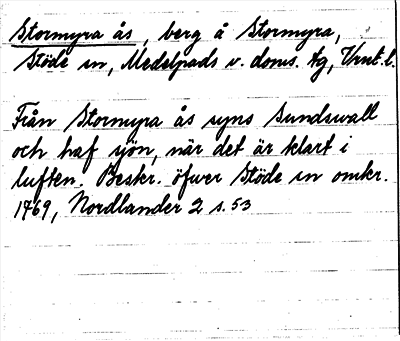 Stormyra ås, berg å Stormyra,
Stöde sn, Medelpads v. doms. tg, Vrnl. l.
Från Stormyra ås syns Sundswall
och haf sjön, när det är klart i
luften. Beskr. öfwer Stöde sn omkr.
1769, Nordlander 2 s. 53